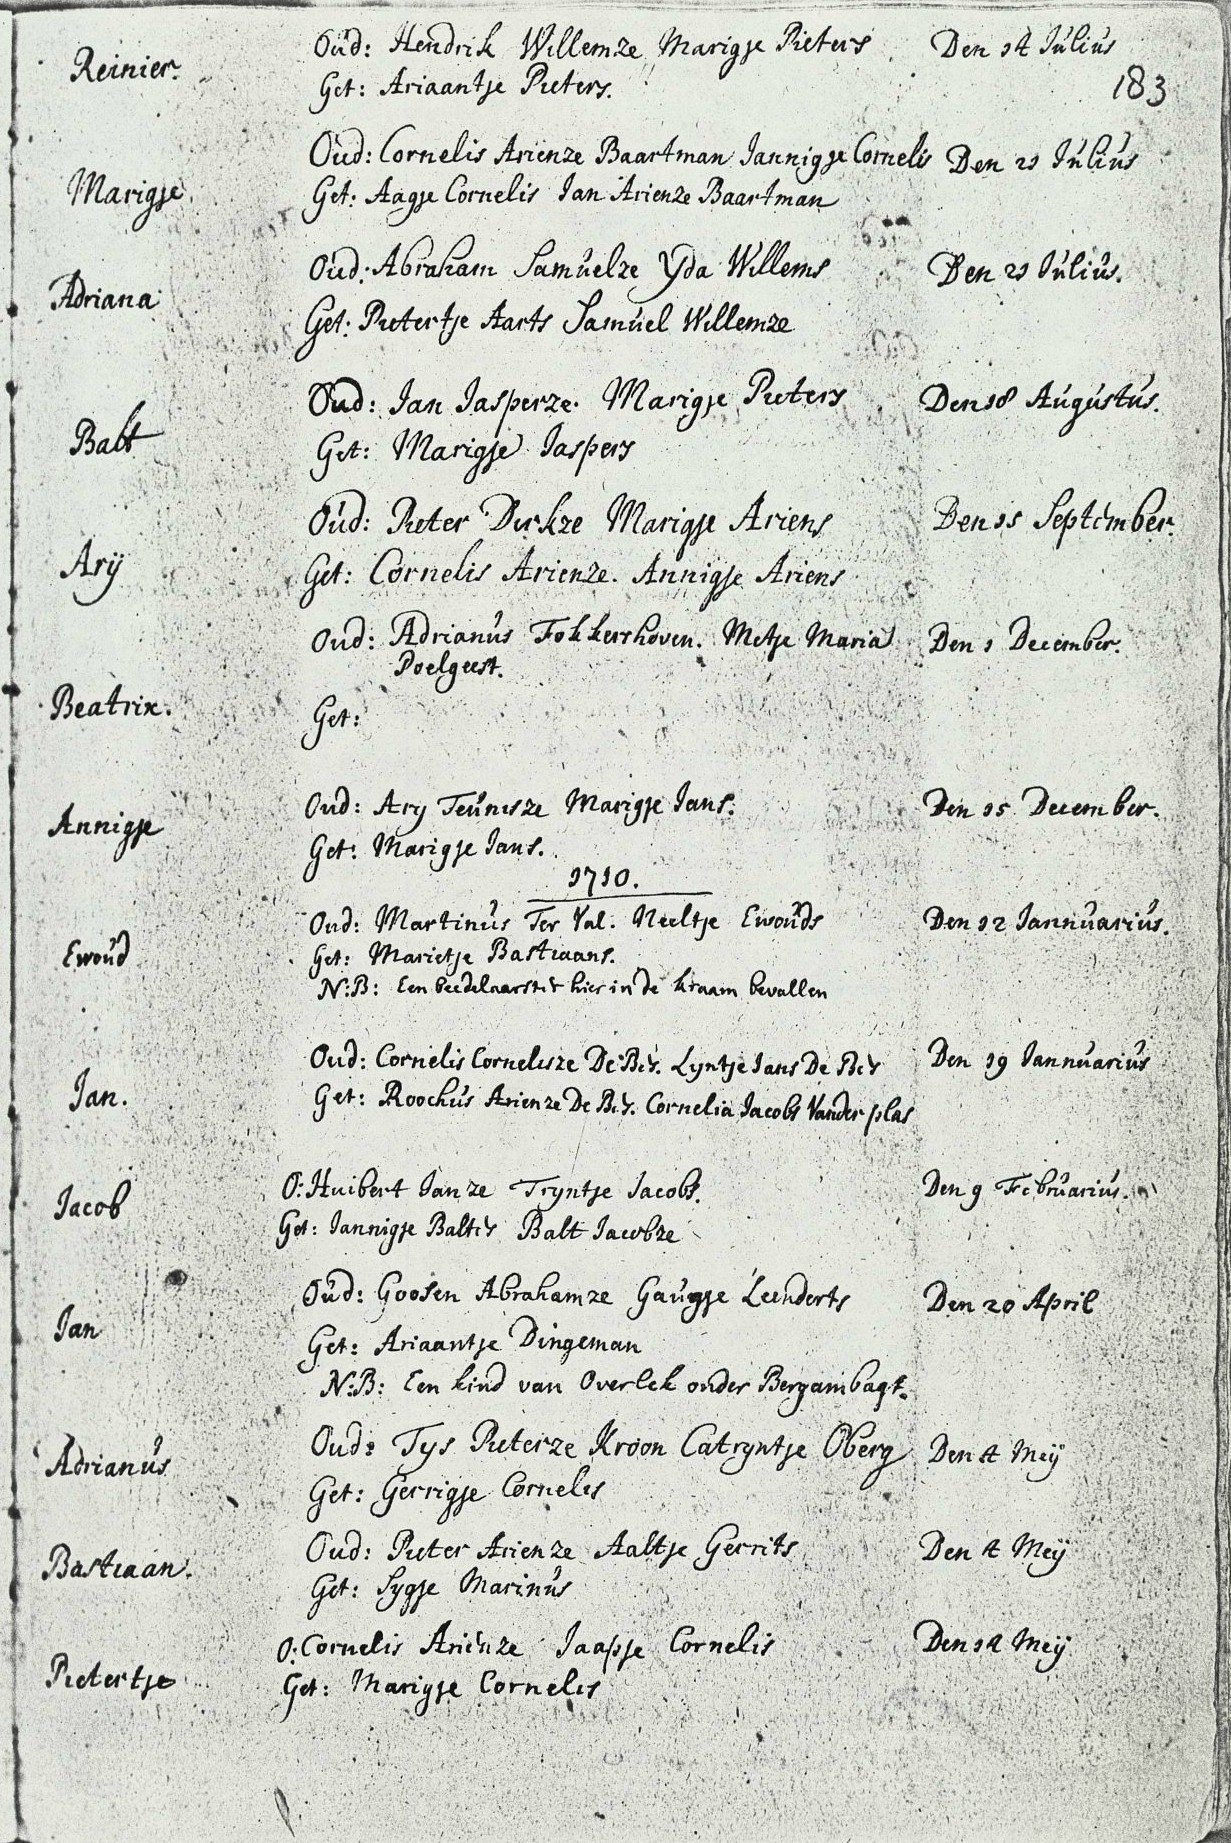 Reinier.
Oud: Hendrik Willemze Marigje Pieters
Den 14 Julius
183
Get: Ariaantje Pieters.
Marigje
Oud: Cornelis Arienze Baartman Jannigje Cornelis
Den 21 Julius
Get: Aagje Cornelis Jan Arienze Baartman
Adriana
Oud: Abraham Samuelze Yda Willems
Den 21 Julius.
Get: Pietertje Aarts Samuel Willemze
Balt
Oud: Jan Jasperze. Marigje Pieters
Den 18 Augustus.
Get: Marigje Jaspers
Arij
Oud: Pieter Dirkze Marigje Ariens
Den 15 September.
Get: Cornelis Arienze. Annigje Ariens
Beatrix.
Oud: Adrianus Fokkershoven. Metje Maria
Den 1 December.
Poelgeest.
Get:
Annigje
Oud: Ary Teunisze Marigje Jans.
Den 15 December.
Get: Marigje Jans.
1710.
Ewoud
Oud: Martinus Ter Val. Neeltje Ewouds
Den 12 Jannuarius.
Get: Marietje Bastiaans.
N:B: Een beedelaarster hier in de kraam bevallen
Jan.
Oud: Cornelis Cornelisze De Bes. Lyntje Jans De Bes
Den 19 Jannuarius
Get: Roochus Arienze De Bes. Cornelia Jacobs Vander plas
Jacob
O: Huibert Janze Tryntje Jacobs.
Den 9 Februarius.
Get: Jannigje Baltes Balt Jacobze
Jan
Oud: Goosen Abrahamze Gaugje Leenderts
Den 20 April
Get: Ariaantje Dingeman
N:B: Een kind van Overlek onder Bergambagt.
Adrianus
Oud: Tys Pieterze Kroon Catryntje Oberg
Den 4 Meij
Get: Gerrigje Cornelis
Bastiaan.
Oud: Pieter Arienze Aaltje Gerrits
Den 4 Meij
Get: Sygje Marinus
Pietertje
O: Cornelis Arienze Jaapje Cornelis
Den 18 Meij
Get: Marigje Cornelis